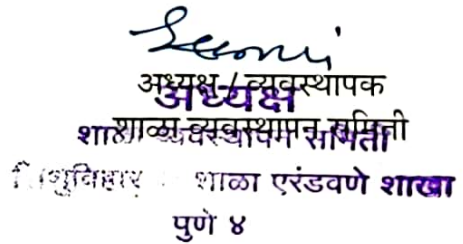 अध्यक्ष / व्यवस्थापक
अध्यक्ष
शाळा व्यवस्थापन समिती
शाळा व्यवस्थापन समिती
शिशुविहार शाळा एरंडवणे शाखा
पुणे ४